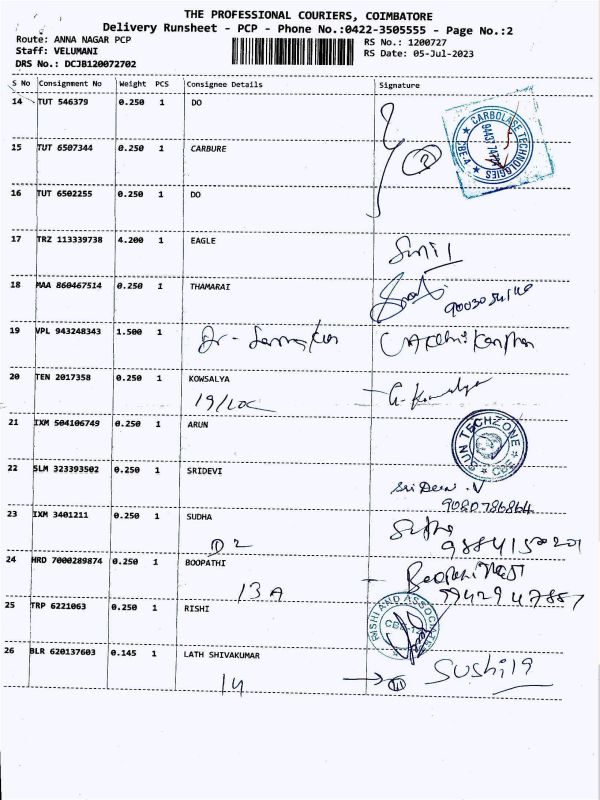 THE PROFESSIONAL COURIERS, COIMBATORE
Delivery Runsheet - PCP - Phone No.:0422-3505555 - Page No.:2
Route: ANNA NAGAR PCP
Staff: VELUMANI
DRS No.: DCJB120072702
RS No.: 1200727
RS Date: 05-Jul-2023
S No Consignment No Weight PCS Consignee Details Signature
14 TUT 546379 0.250 1 DO
CARBOLASE TECHNOLOGIES
CBE-4
15 TUT 6507344 0.250 1 CARBURE
2
16 TUT 6502255 0.250 1 DO
17 TRZ 113339738 4.200 1 EAGLE
Sunil
18 MAA 860467514 0.250 1 THAMARAI
19 VPL 943248343 1.500 1 Dr -
20 TEN 2017358 0.250 1 KOWSALYA
19/LOC
21 IXM 504106749 0.250 1 ARUN
SUN TECHZONE
CBE
22 SLM 323393502 0.250 1 SRIDEVI
Sri Devi . N
9080786864
23 IXM 3401211 0.250 1 SUDHA Sudha
D2
24 HRD 7000289874 0.250 1 BOOPATHI
13 A 9942947887
25 TRP 6221063 0.250 1 RISHI
RISHI AND ASSOCIATES
CBE-12
26 BLR 620137603 0.145 1 LATH SHIVAKUMAR
14 Sushila